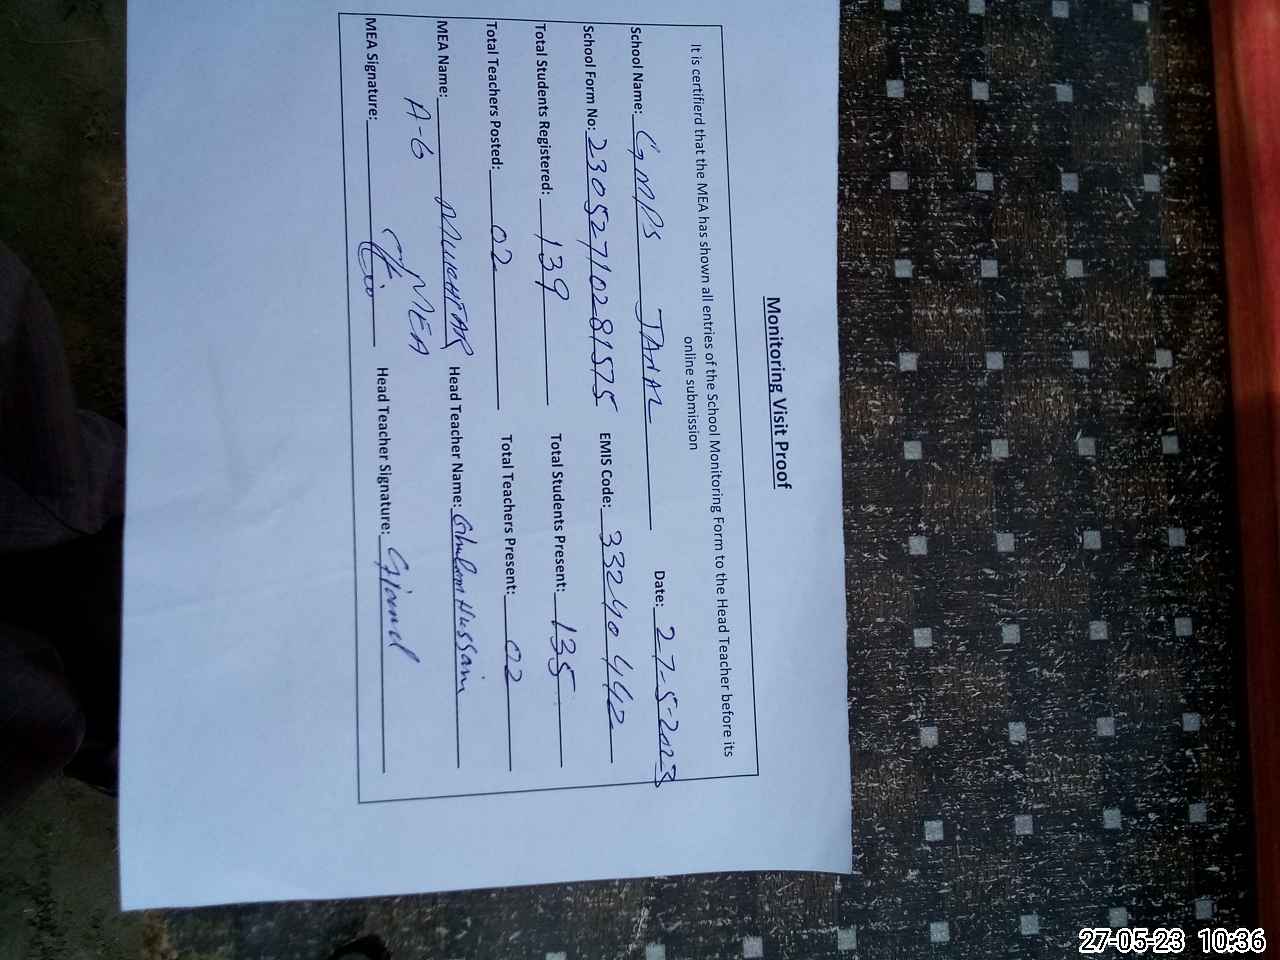 Monitoring Visit Proof
It is certifierd that the MEA has shown all entries of the School Monitoring Form to the Head Teacher before its
online submission
School Name: GMPS JAMAL Date: 27-5-2023
School Form No: 23052710281575 EMIS Code: 33240442
Total Students Registered: 139 Total Students Present: 135
Total Teachers Posted: 02 Total Teachers Present: 02
MEA Name: MUKHTAR Head Teacher Name: Ghulam Hussain
A-6 MEA
MEA Signature: Head Teacher Signature:
27-05-23 10:36